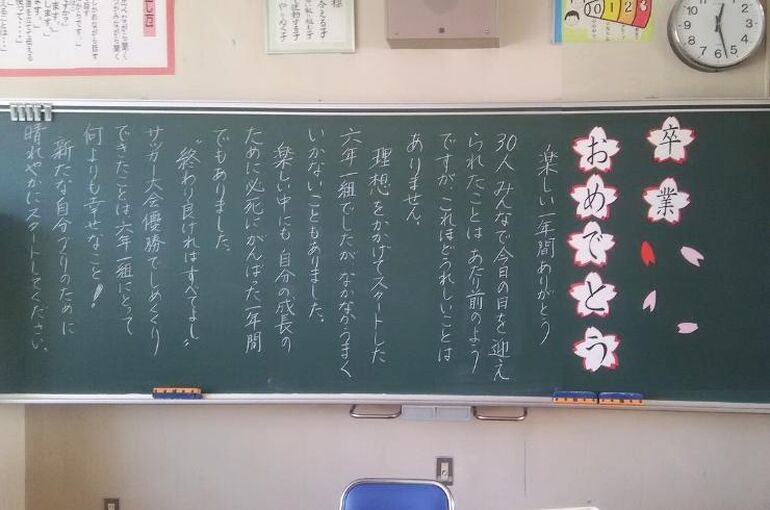 卒業
おめでとう
楽しい一年間ありがとう
30人みんなで今日の日を迎え
られたことは あたり前のよう
ですが、これほどうれしいことは
ありません。
理想をかかげてスタートした
六年一組でしたが なかなかうまく
いかないこともありました。
楽しい中にも 自分の成長の
ために必死にがんばった一年間
でもありました。
"終わり良ければすべてよし"
サッカー大会優勝でしめくくり
できたことは、六年一組にとって
何よりも幸せなこと!
新たな自分づくりのために
晴れやかにスタートしてください。